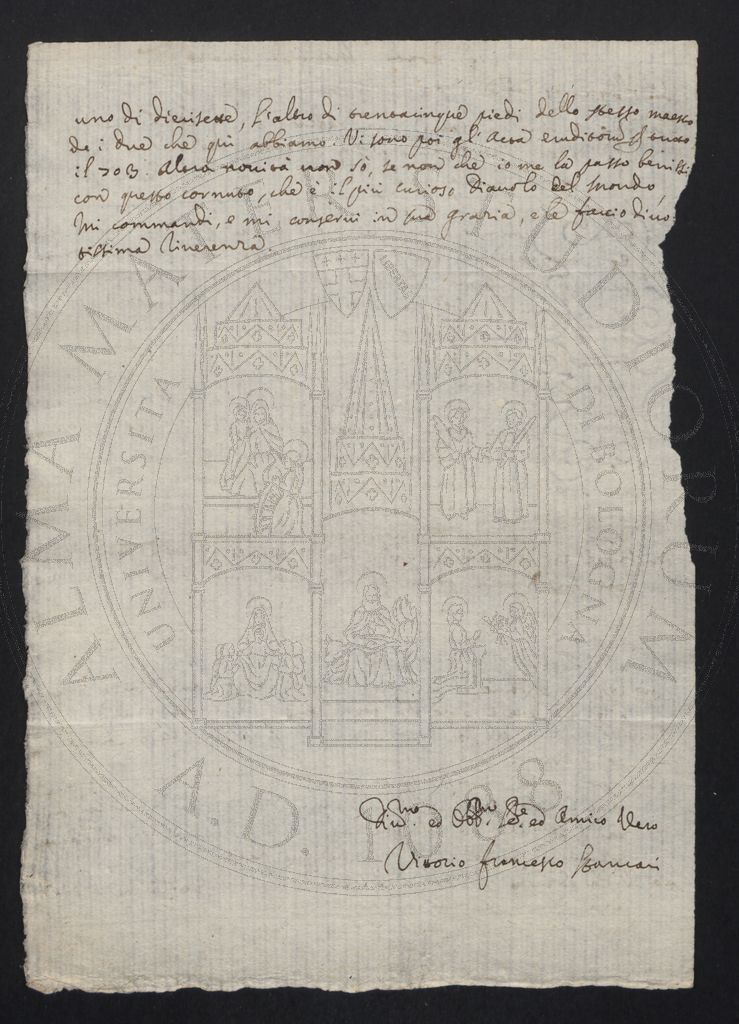 uno di diecisette, l'altro di trentacinque piedi dello stesso maestro
de i due che qui abbiamo. Vi sono poi gl'Acta eruditorum tutto
il 703. Altra novità non sò, se non che io me la passo
con questo cornuto, che è il più curioso Diavolo del Mondo,
Mi commandi, e mi conservi in sua grazia, e le faccio divo-
tissima riverenza.
ALMA MATER STUDIORUM
UNIVERSITA DI BOLOGNA
A.D. 1088
ed Amico Vero
Vittorio Francesco Stancari